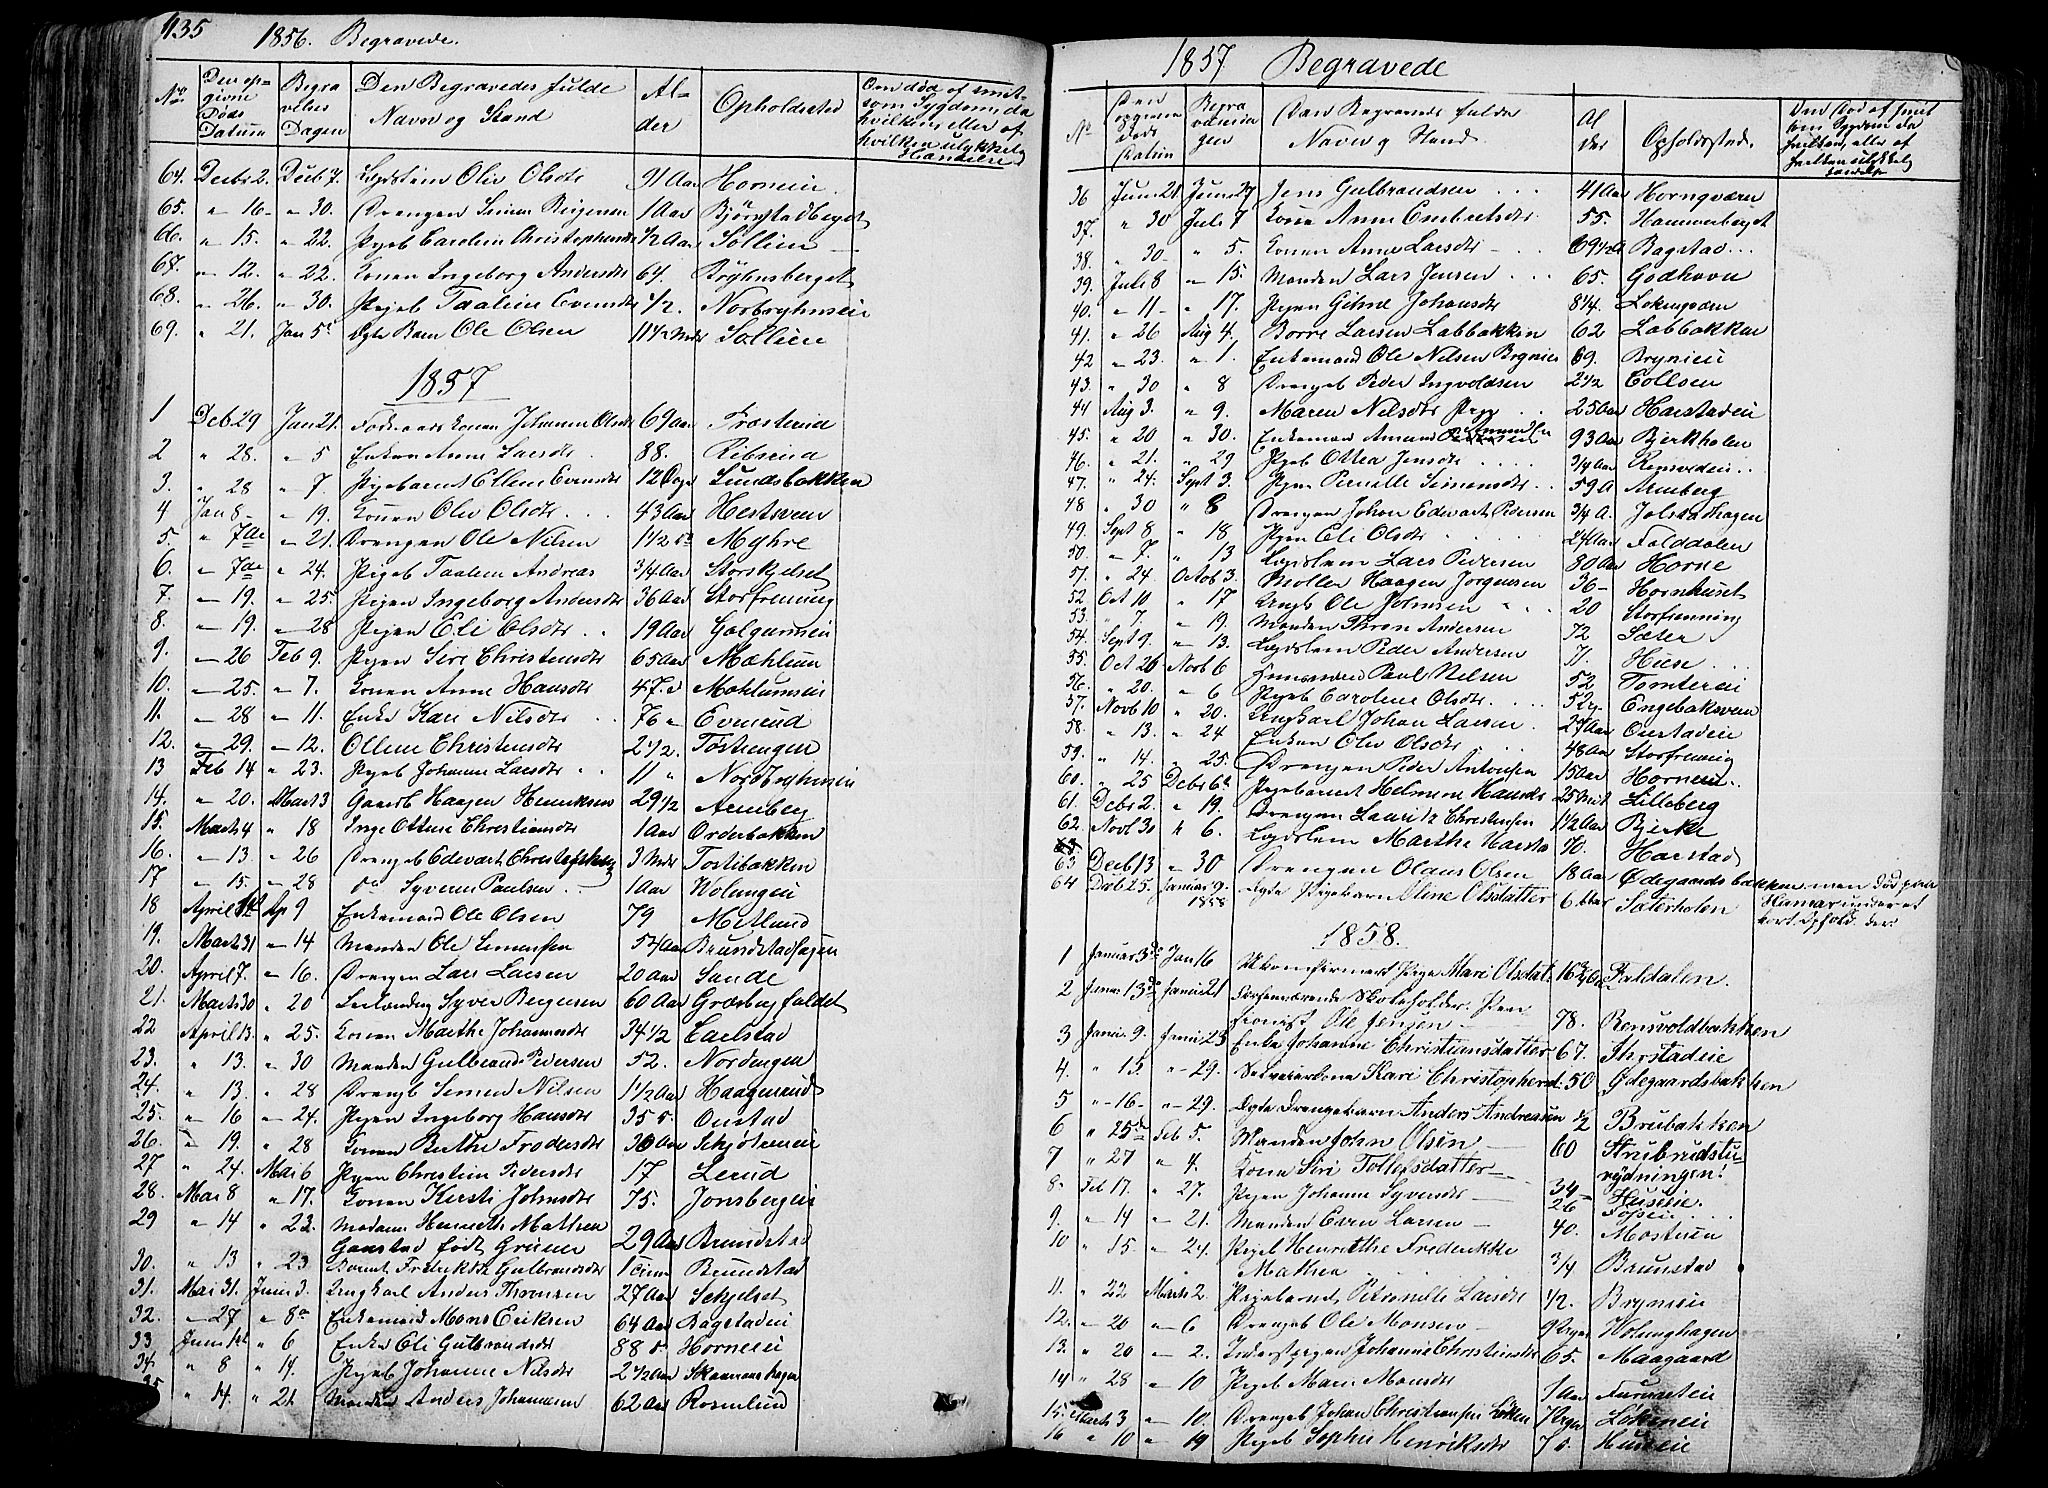 435 1856. Begravede.
No Den opgivne Døds Datum Begravelses Dagen Den Begravedes fulde Navn og Stand Alder Opholdssted Om død af smitsom Sygdom, da hvilken eller af hvilken ulykkelig Hændelse
64. Decbr 2. Decb 7. Lægdslem Oliv Olsdtr 91 Aar Horneie.
65. " 16 " 30. Drengen Simen Birgersen 1 Aar Bjørnstadberget
66. " 15. " 22. Pigeb Caroline Christophersdtr 1/2 Aar Sollien
67. " 12. " 22. Konen Ingeborg Andersdtr 64.
68. " 26. " 30. Pigeb Taaline Evensdtr 1/2. Norbryhnseie
69. " 21. Jan 5te Dgb Barn Ole Olsen 11 1/2 Mdr Sollien
1857
1 Deb 29 Jan 21. Føderaads Konen Johanne Olsdtr 69 Aar Frosterud
2 " 28. " 5 Enken Anne Larsdtr 88. Ribserud
3. " 28 " 7 Pigebarnet Ellene Evensdtr 12 Dage Lundsbakken
4 Jan 8 " 19. Konen Oliv Olsdtr 43 Aar Hertsveen
5. " 7de " 21. Drengen Ole Nilsen 1 1/2 do Myhre
6. " 7de " 24. Pigeb Taalene Andreas 3/4 Aar Storskjelset
7. " 19. " 25. Pigen Ingeborg Andersdtr 36 Aar Storfrening
8. " 19. " 28 Pigen Eli Olsdtr 19 Aar
9. " 26 Feb 9. Pigen Siri Christensdtr 65 Aar Mæhlum
10. " 25. " 7. Konen Anne Hansdtr 47. " Mæhlumseie
11. " 28 " 11. Enke Kari Nilsdtr 76 " Evenrud
12. " 29. " 12. Ollene Christensdtr 2 1/2. Tostengen
13 Feb 14 " 23. Pigeb Johanne Larsdtr 11 " Nordbryhnseie
14. " 20. Marts 3 Gaardb Haagen Henriksen 29 1/2 Arneberg
15. Marts 4 " 18 Inge Ottine Christiansdtr 1 Aar Orderbakken
16. " 13. " 26 Drengeb Edevart Christophersen 3 Mdr Tostibakken
17 " 15. " 28 do Syverin Paulsen 1 Aar Wolungeie
18 April 1st Ap 9 Enkemand Ole Olsen 79 Metlund
19. Marts 31 " 14 Manden Ole Simensen 54 Aar Brundstadhagen
20. April 7. " 16. Drengen Lars Larsen 20 Aar Sande
21. Marts 30 " 20 Syver Birgersen 60 Aar Græsbergfaldet
22 April 13. " 25. Konen Marthe Johannesdtr 34 1/2 Carlstad
23. " 13. " 30 Manden Gulbrand Pedersen 52. Nordengen
24. " 13 " 28 Drengb Simen Nilsen 1 1/2 Aar Haagenrud
25. " 16 " 24. Pigen Ingeborg Hansdtr 35 do. Onstad
26. " 19. " 28 Konen Berthe Frodesdtr 30 Aar Schjøtseneie
27 " 24. Mai 6 Pigen Christine Pedersdtr 17 Lerud
28. Mai 8 " 17. Konen Kersti Johnsdtr 75. Jonsbergeie
29 " 14 " 23. Madame Henriette Mathea Gaustad født Grüner 29 Aar Brundstad
30. " 13 " 23 Frederikke Gulbrandsdtr Brundstad
31. Mai 31. Juni 3. Ungkarl Anders Thronsen 27 Aar Schjelset
32. " 27 " 8de Enkemand Mons Eriksen 64 Aar Bagstadeie
33 Juni 1st " 6 Enke Eli Gulbrandsdtr 88 do Horneeie
34. " 8 " 14. Pigeb Johanne Nilsdtr 2 1/2 Aar Skaanneshagen
35 " 14. " 21 Manden Anders Johannesen 62 Aar Rosenlund
1857 Begravede
No Den opgivne Døds Datum Begravelsesdagen Den Begravedes fulde Navn og Stand. Alder Opholdssted. Om Død af smitsom Sygdom da hvilken, eller af hvilken ulykkelig Hændelse
36 Juni 21 Juni 27 Jens Gulbrandsen 41 Aar Horngværn
37. " 30 Juli 7 Kone Anne Embretsdtr 55. Hammerberget
38. " 30 " 5 Konen Anne Larsdtr 69 1/2 A Bagstad
39. Juli 8 " 15. Manden Lars Jensen 65. Godhovn
40. " 11 " 17. Pigen Gihne Johansdtr 8 1/4. Løkengværn
41. " 26 Aug 4. Borre Larsen Labbakken 62 Labbakken
42 " 23. " 1. Enkemand Ole Nilsen Brynies 69. Brynieie
43. " 30 " 8 Drengeb Peder Ingvoldsen 2 1/2 Collsen
44 Aug 3. " 9. Maren Nilsdtr Pige 25 Aar Harstadeie
45. " 20 " 30. Enkemand Amund Amundsen 93 Aar Bjerkholen
46. " 21. " 29 Pigeb Ottea Jensdtr 3/4 Aar Rensvoldeie
47. " 24. Sept 3. Pigen Pernille Simensdtr 59 A Arneberg
48 " 30 " 8 Drengen Johan Edevart Pedersen 3/4 A. Jolstadhagen
49. Sept 8 " 18 Pigen Eli Olsdtr 24 Aar Falddalen
50. " 7. " 13 Lægdslem Lars Pedersen 80 Aar Horne
51. " 24. Octob 3. Møller Haagen Jørgensen 36 Hornhuset
52. Oct 10 " 17 Ungk Ole Johnsen 20 Storfrenning
53. " 7. " 19. Manden Thron Andersen 72 Sæter
54. Sept 9. " 13. Lægdslem Peder Andersen 71. Huse
55. Oct 26 Novb 6 Huusmand Paul Nilsen 52 Tomtereie
56. " 20. " 6 Pigeb Caroline Olsdtr 52 Engebaksveen
57. Novb 10 " 20. Ungkarl Johan Larsen 27 Aar Onstadeie
58. " 13. " 24 Enken Oliv Olsdtr 48 Aar Storfrening
59. " 14. " 25. Drengen Peder Antonsen 15 Aar Horneeie
60. " 25 Decbr 6te Pigebarnet Helmine Hansdtr 25 Lilleberg
61. Decbr 2. " 19. Drengen Lauritz Christensen 1 1/2 Aar Bjerke
62. Novb 30 " 6. Lægdslem Marthe Harstad 70. Harstad
63 Decb 13 " 30 Drengen Olaus Olsen 18 Aar Ødegaardsbakken men død paa Hamar under et kort Ophold der.
64 Dcb 25. Januar 9. 1858 Dgte Pigebarn Oline Olsdatter 6 Uker Sæterholen
1858.
1 Januar 3de Jan 16 Ukonfirmert Pige Mari Olsdat. 16 3/4 Aar Faldalen.
2 Janu. 13de Janu 21 Forhenværende Skoleholder. Pensionist Ole Jensen 78. Rensvoldbakken
3 Janu 9. Janu 23 Enke Johanne Christiansdatter 67. Ihrstadeie
4. " 15 " 29. Selveierkone Kari Christophersd. 50 Ødegaardsbakken
5 " 16 " 29. Dgte Drengebarn Anders Andreassen 1/2 Brubakken
6 " 25d Feb 5. Manden John Olsen 60 Strubrudsturydningen!
7 " 27 " 4. Kone Siri Tollefsdatter 34
8. Feb 17. " 27. Pigen Johanne Syversdtr 26 Huseeie.
9. " 14 " 21. Manden Even Larsen 40. Mostuen
10 " 15. " 24. Pigeb Henriette Frederikke Mathea 3/4 Brunstad
11. " 22 Marts 2. Pigebarnet Petronelle Larsdtr 1/2. Brynieie
12. " 20 " 6 Drengeb Ole Monsen 9 Dage Wolunghagen
13. " 20 " 2. Pigen Johanne Christiansdtr 65. Maagaard
14 " 28 " 10 Pigeb Mari Monsdtr 1 Aar Furuseteie
15. Marts 3 " 10. Drengeb Johan Christiansen Løken 7 Dage Løkeneie
16 " 10 " 19 Pigeb Sophie Henriksdtr 7 d. Huseeie